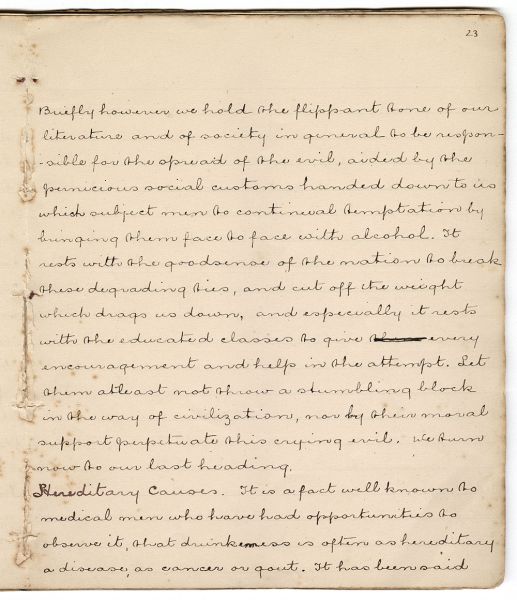 23
Briefly however we hold the flippant tone of our
literature and of society in general to be respon-
-sible for the spread of the evil, aided by the
pernicious social customs handed down to us
which subject men to continual temptation by
bringing them face to face with alcohol. It
rests with the goodsense of the nation to break
these degrading ties, and cut off the weight
which drags us down, and especially it rests
with the educated classes to give every
encouragement and help in the attempt. Let
them atleast not throw a stumbling block
in the way of civilization, nor by their moral
support perpetuate this crying evil. We turn
now to our last heading.
Hereditary Causes. It is a fact well known to
medical men who have had opportunities to
observe it, that drunkenness is often as hereditary
a disease, as cancer or gout. It has been said